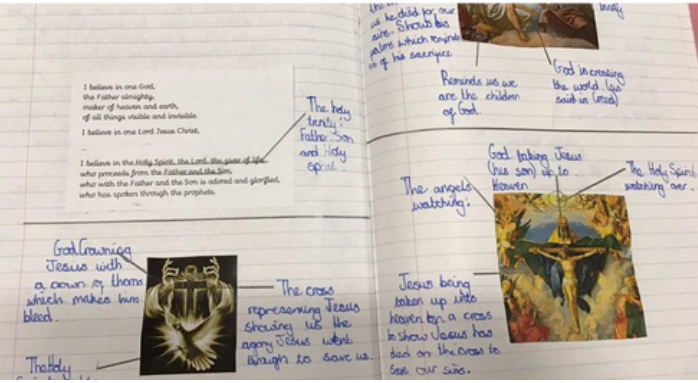 I believe in one God,
the Father almighty,
maker of heaven and earth,
of all things visible and invisible.
I believe in one Lord Jesus Christ,
...
I believe in the Holy Spirit, the Lord, the giver of life,
who proceeds from the Father and the Son,
who with the Father and the Son is adored and glorified,
who has spoken through the prophets.
The holy
trinity:
Father, Son
and Holy
spirit.
God Crowning
Jesus with
a crown of thorns
which makes him
bleed.
The Holy
The cross
representing Jesus
showing us the
agony Jesus went
through to save us.
us he died for our
sins. Shows his
palms which reminds
us of his sacrifice
Reminds us we
are the children
of God.
God is creating
the world (as
said in creed)
The angels
watching.
God taking Jesus
(his son) up to
Heaven
The Holy Spirit
watching over
Jesus being
taken up into
heaven on a cross
to show Jesus has
died on the cross to
save our sins.